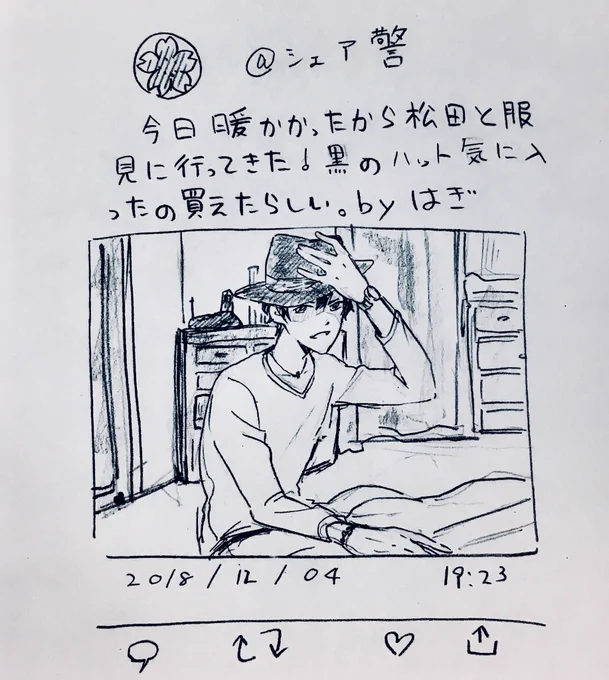 @シェア警
今日暖かかったから松田と服
見に行ってきた！黒のハット気に入
ったの買えたらしい。by はぎ
2018/12/04 19:23